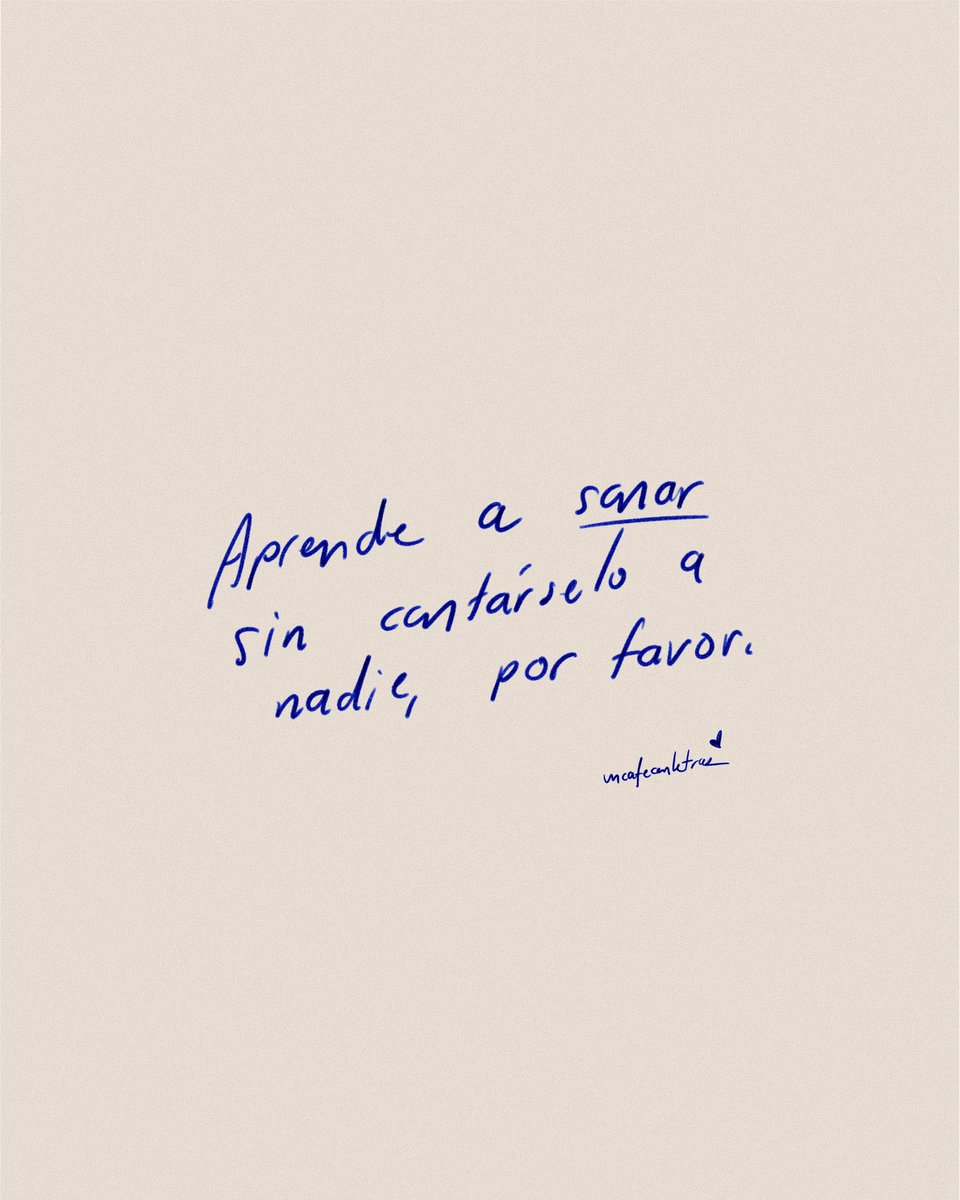 Aprende a sanar
sin contárselo a
nadie, por favor.
uncafeconletras